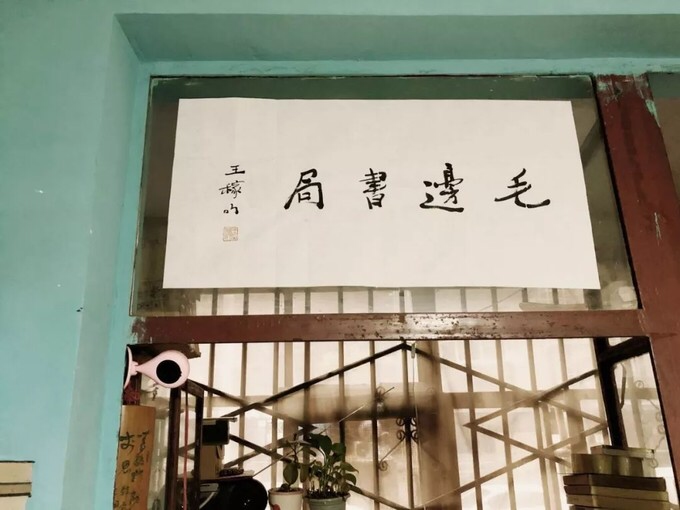 毛邊書局
王稼句